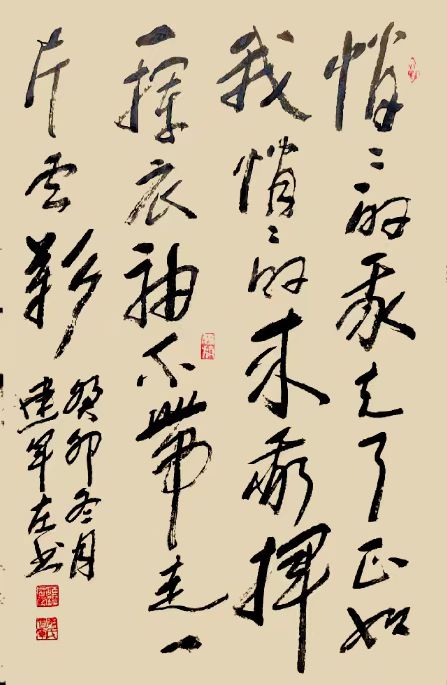 悄〻的我走了正如
我悄〻的来我揮
一揮衣袖不帶走一
片云彩
癸卯冬月
建军左书